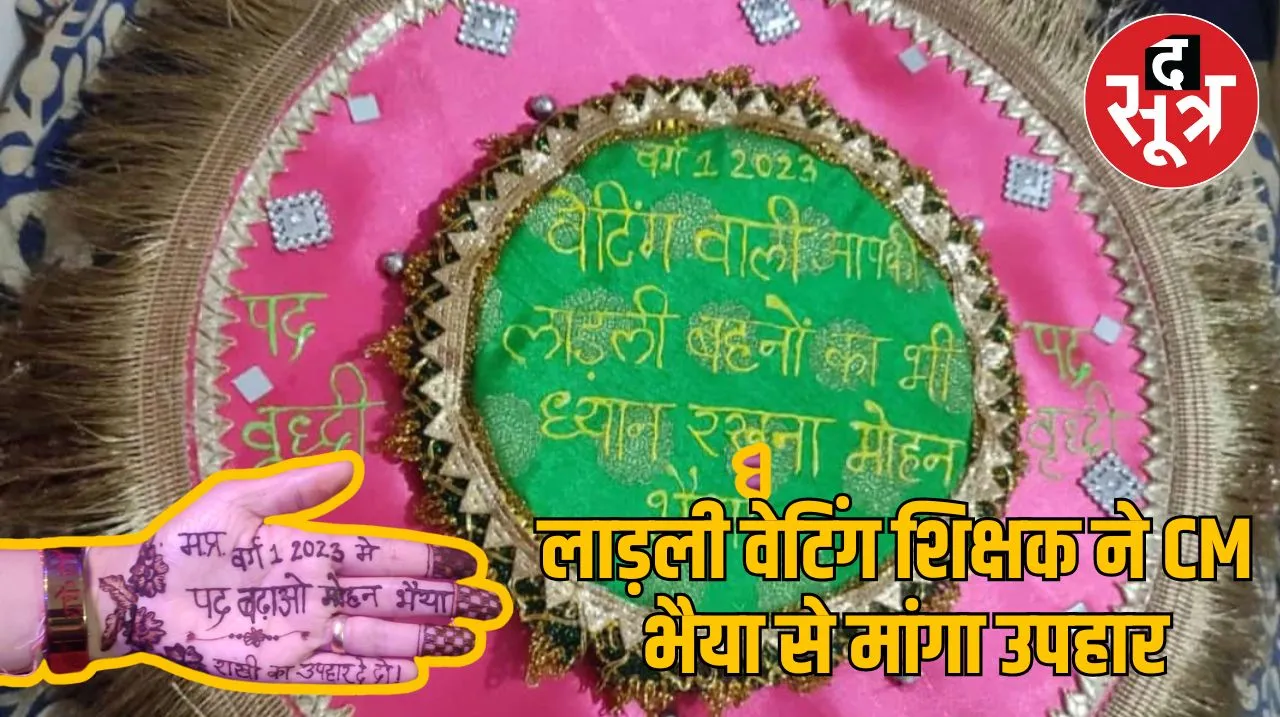 द
सूत्र
वर्ग 1 2023
वेटिंग वाली आपकी
लाड़ली बहनों का भी
ध्यान रखना मोहन
भैया
पद
वृध्दी
पद
वृध्दी
म.प्र. वर्ग 1 2023 मे
पद बढ़ाओ मोहन भैय्या
राखी का उपहार दे दो।
लाड़ली वेटिंग शिक्षक ने CM
भैया से मांगा उपहार